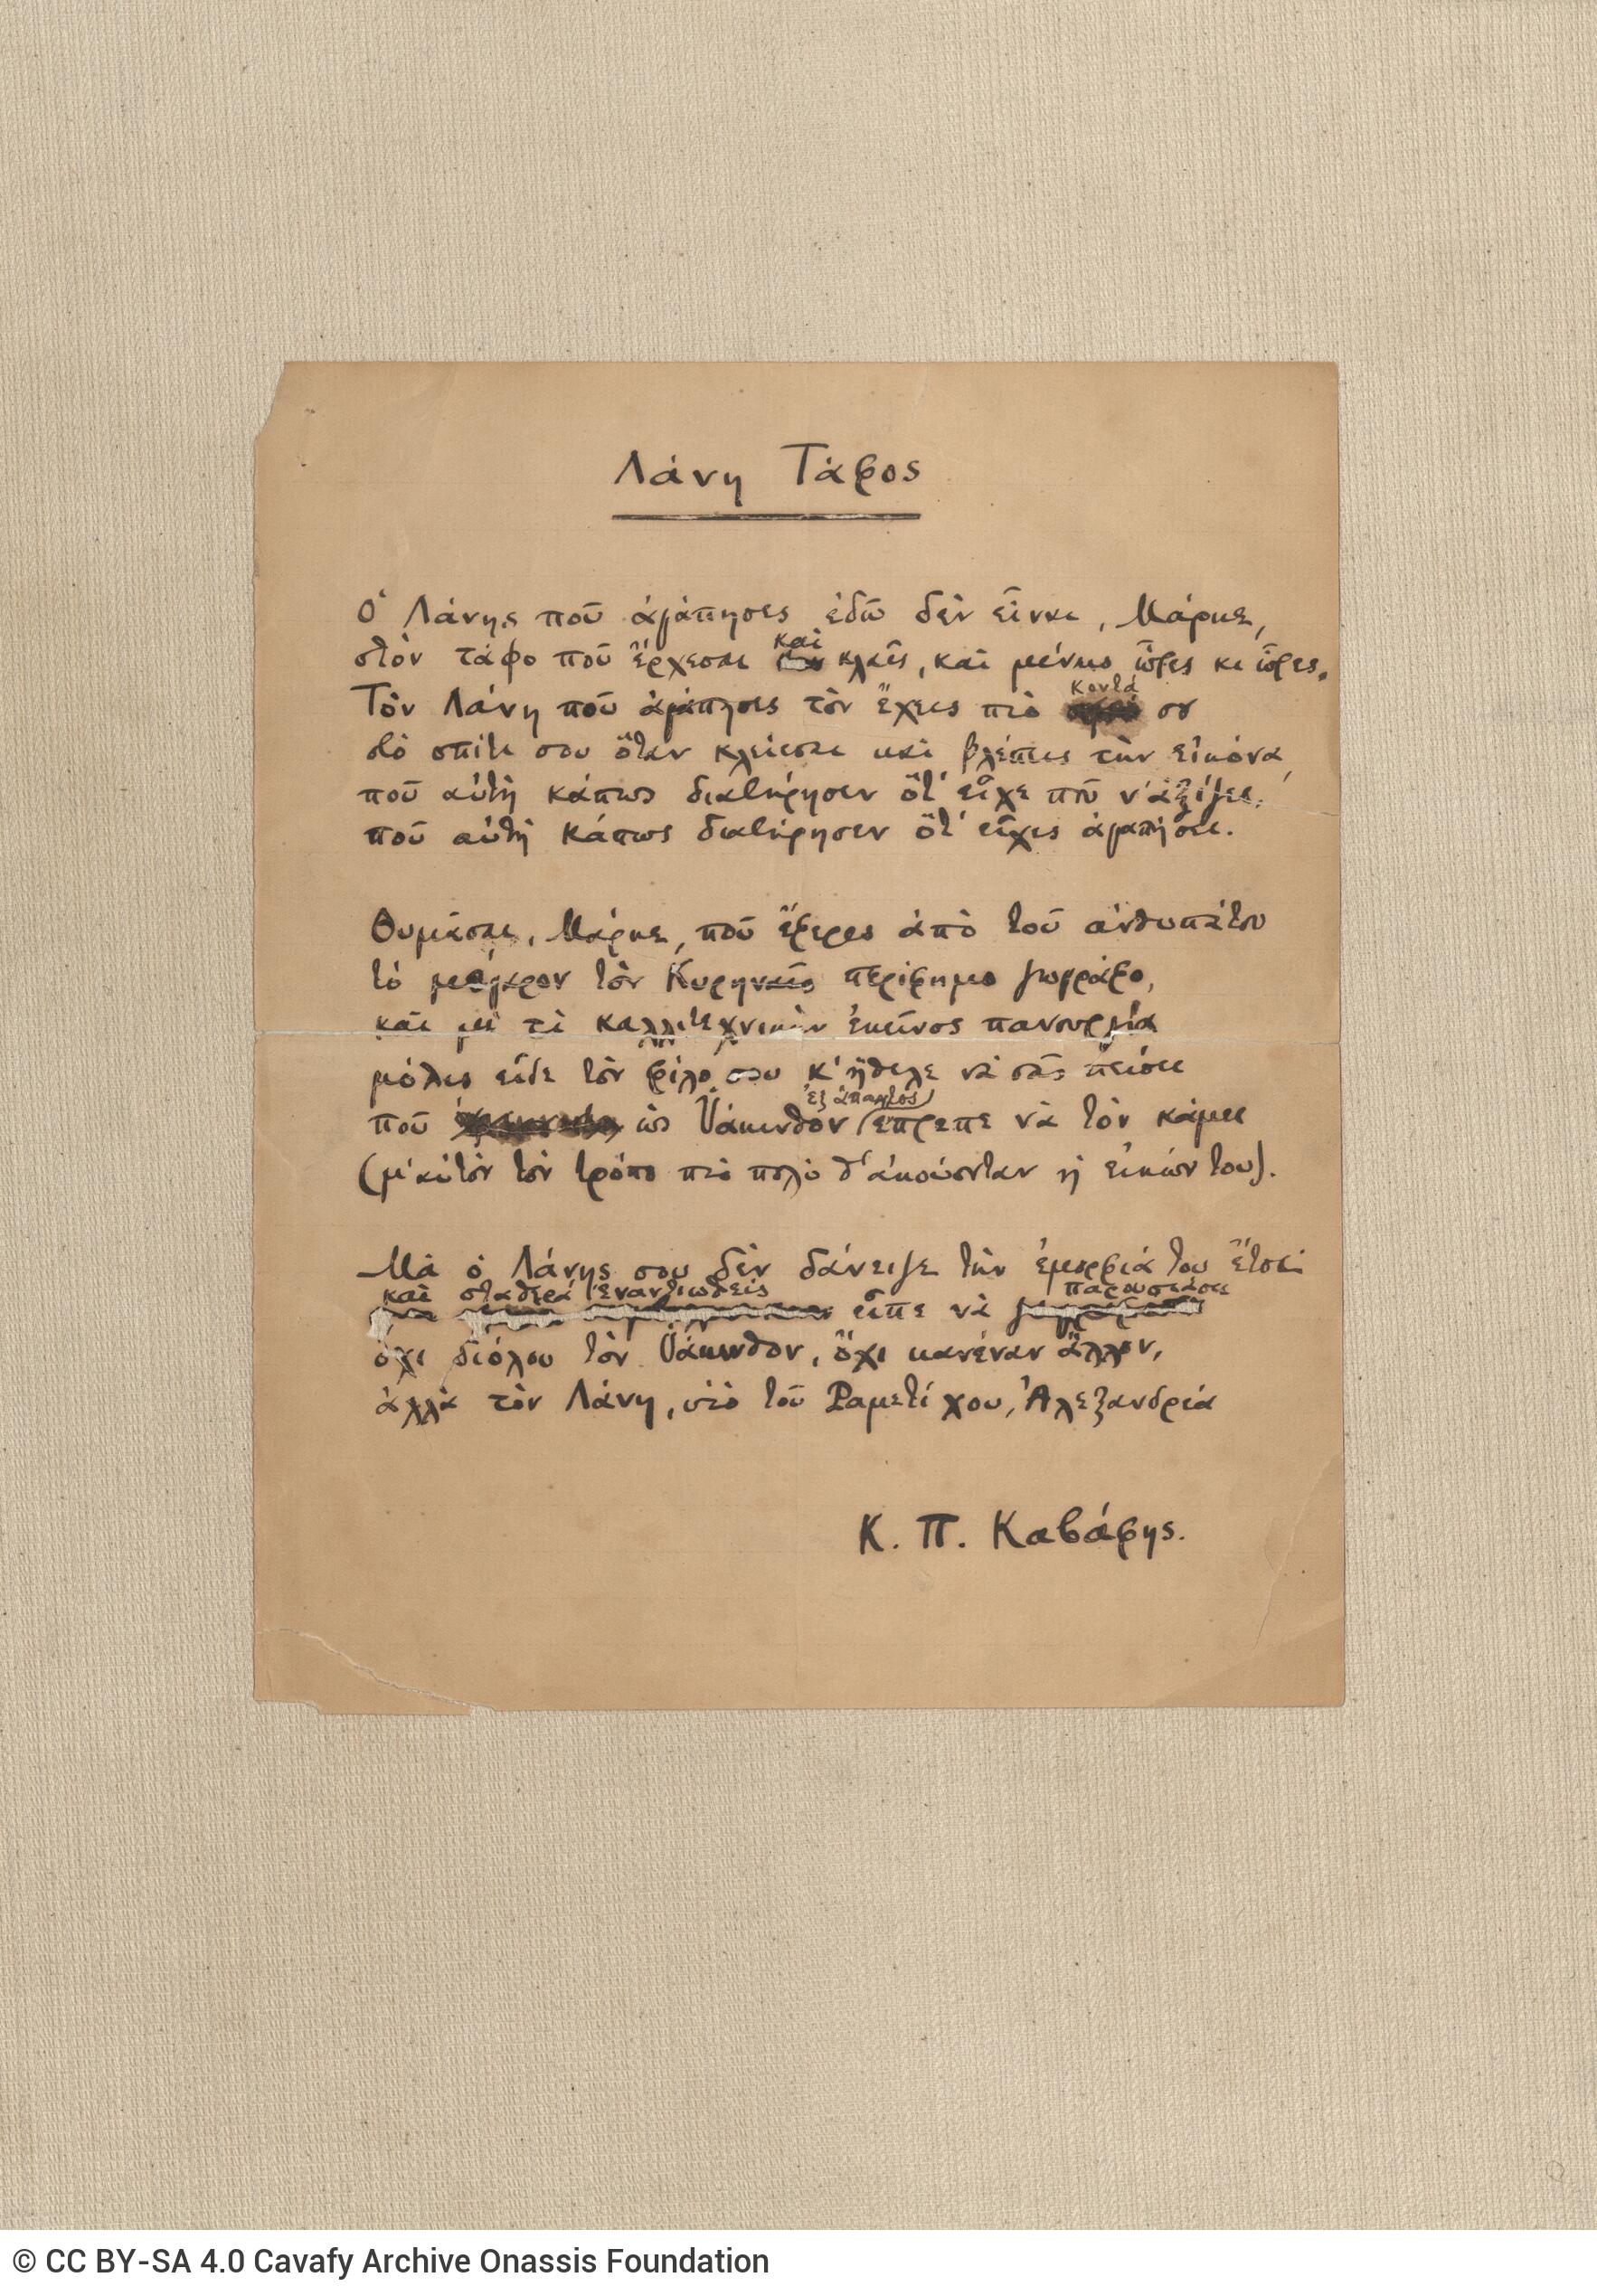 Λάνη Τάφος
Ὁ Λάνης ποῦ ἀγάπησες ἐδῶ δὲν εἶναι, Μάρκε,
στὸν τάφο ποῦ ἔρχεσαι καὶ κλαῖς, καὶ μένεις ὧρες κι ὧρες.
Τὸν Λάνη ποῦ ἀγάπησες τὸν ἔχεις πιὸ κοντά σου
στὸ σπίτι σου ὅταν κλείεσαι καὶ βλέπεις τὴν εἰκόνα,
ποῦ αὐτὴ κάπως διατήρησεν ὅτ' εἶχε ποῦ ν' ἀξίζει,
ποῦ αὐτὴ κάπως διατήρησεν ὅτ' εἶχες ἀγαπήσει.
Θυμᾶσαι, Μάρκε, ποῦ ἔφερες ἀπὸ τοῦ ἀνθυπάτου
τὸ μέγαρον τὸν Κυρηναῖο περίφημο ζωγράφο,
καὶ μὲ τὶ καλλιτεχνικὴν ἐκεῖνος πανουργία
μόλις εἶδε τὸν φίλο σου κ' ἤθελε νὰ σᾶς πείσει
ποῦ ὡς Ὑάκινθον ἐξ ἅπαντος ἔπρεπε νὰ τὸν κάμει
(μ' αὐτὸν τὸν τρόπο πιὸ πολὺ θ' ἀκούονταν ἡ εἰκών του).
Μὰ ὁ Λάνης σου δὲν δάνειζε τὴν ἐμορφιά του ἔτσι·
καὶ σταθερὰ ἐναντιωθεὶς εἶπε νὰ παρουσιάσει
ὄχι διόλου τὸν Ὑάκινθον, ὄχι κανέναν ἄλλον,
ἀλλὰ τὸν Λάνη, υἱὸ τοῦ Ραμετίχου, Ἀλεξανδρέα
Κ. Π. Καβάφης.
© CC BY-SA 4.0 Cavafy Archive Onassis Foundation